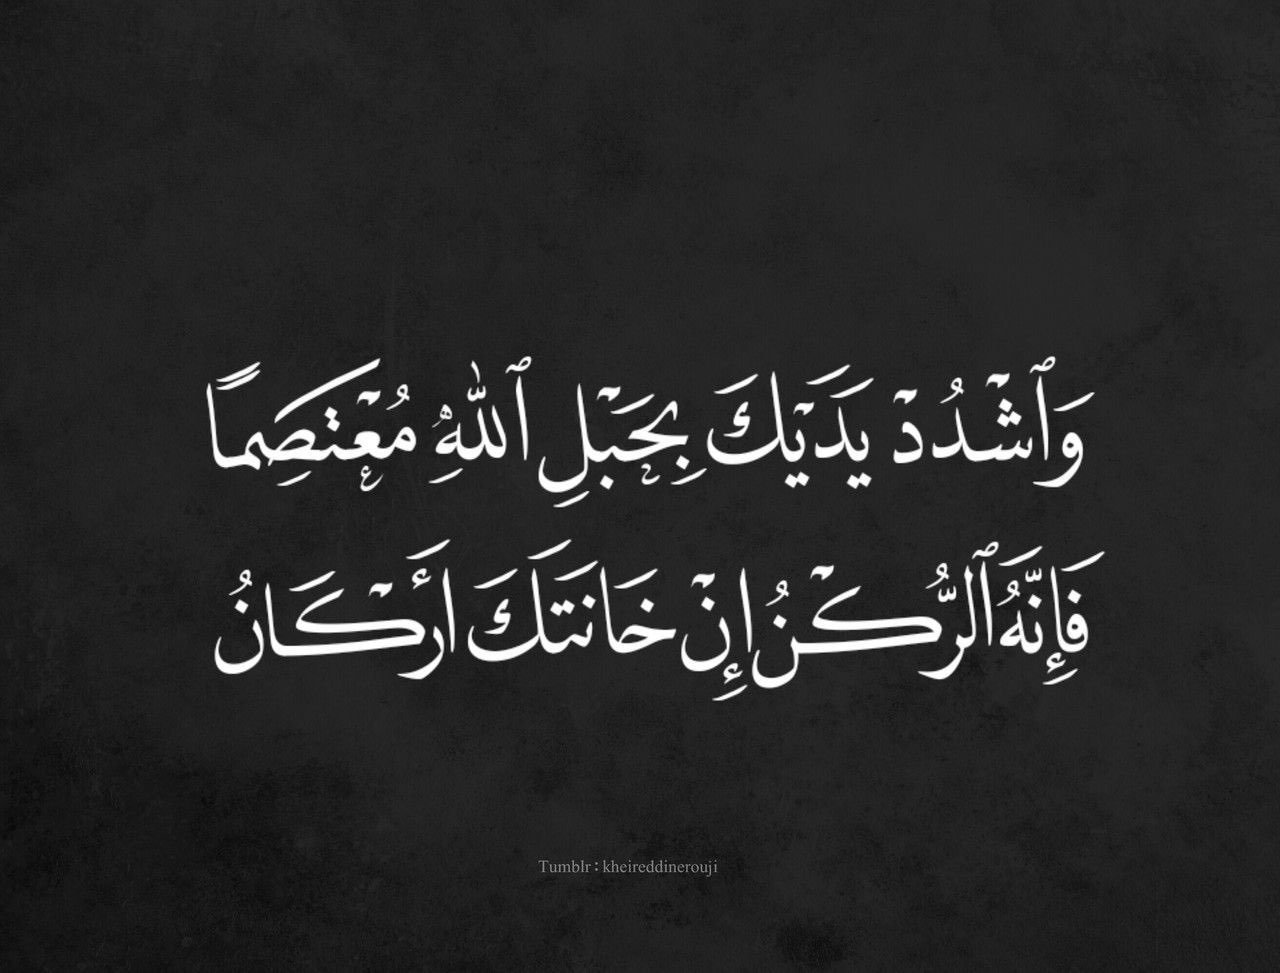 وَٱشْدُدْ يَدَيْكَ بِحَبْلِ ٱللهِ مُعْتَصِمًا
فَإِنَّهُ ٱلرُّكْنُ إِنْ خَانَتَكَ أَرْكَانُ
Tumblr : kheireddinerouji